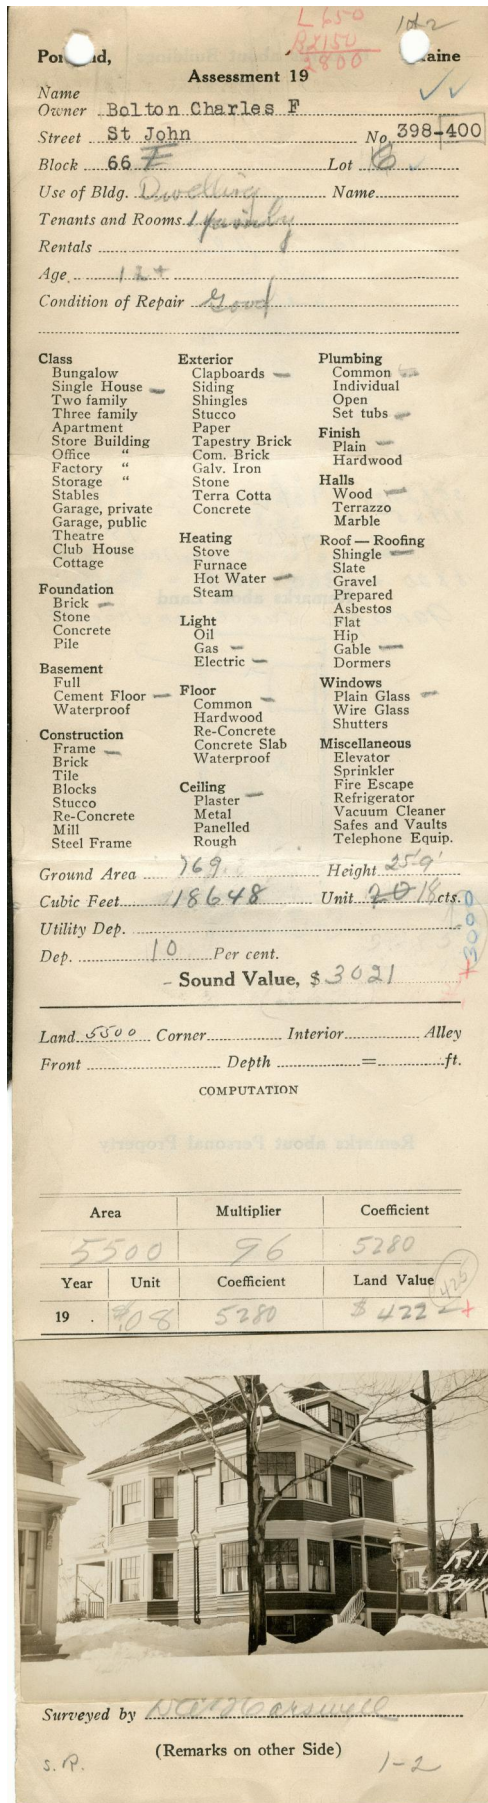 L 650
B 2150
2800
1 of 2
Portland, Maine
Assessment 19
Name
Owner Bolton Charles F
Street St John No. 398-400
Block 66 F Lot 6
Use of Bldg. Dwelling Name
Tenants and Rooms 1 family
Rentals
Age 12 +
Condition of Repair Good
Class
Bungalow
Single House
Two family
Three family
Apartment
Store Building
Office "
Factory "
Storage "
Stables
Garage, private
Garage, public
Theatre
Club House
Cottage
Foundation
Brick
Stone
Concrete
Pile
Basement
Full
Cement Floor
Waterproof
Construction
Frame
Brick
Tile
Blocks
Stucco
Re-Concrete
Mill
Steel Frame
Exterior
Clapboards
Siding
Shingles
Stucco
Paper
Tapestry Brick
Com. Brick
Galv. Iron
Stone
Terra Cotta
Concrete
Heating
Stove
Furnace
Hot Water
Steam
Light
Oil
Gas
Electric
Floor
Common
Hardwood
Re-Concrete
Concrete Slab
Waterproof
Ceiling
Plaster
Metal
Panelled
Rough
Plumbing
Common
Individual
Open
Set tubs
Finish
Plain
Hardwood
Halls
Wood
Terrazzo
Marble
Roof — Roofing
Shingle
Slate
Gravel
Prepared
Asbestos
Flat
Hip
Gable
Dormers
Windows
Plain Glass
Wire Glass
Shutters
Miscellaneous
Elevator
Sprinkler
Fire Escape
Refrigerator
Vacuum Cleaner
Safes and Vaults
Telephone Equip.
Ground Area 769 Height 25'9"
Cubic Feet 18648 Unit 20 18 cts.
Utility Dep.
+3000
Dep. 10 Per cent.
Sound Value, $ 3021
Land 5500 Corner Interior Alley
Front Depth = ft.
COMPUTATION
Area Multiplier Coefficient
5500 96 5280
Year Unit Coefficient Land Value
425
19 . $.08 5280 $ 422 +
Surveyed by
(Remarks on other Side)
S. R. 1-2